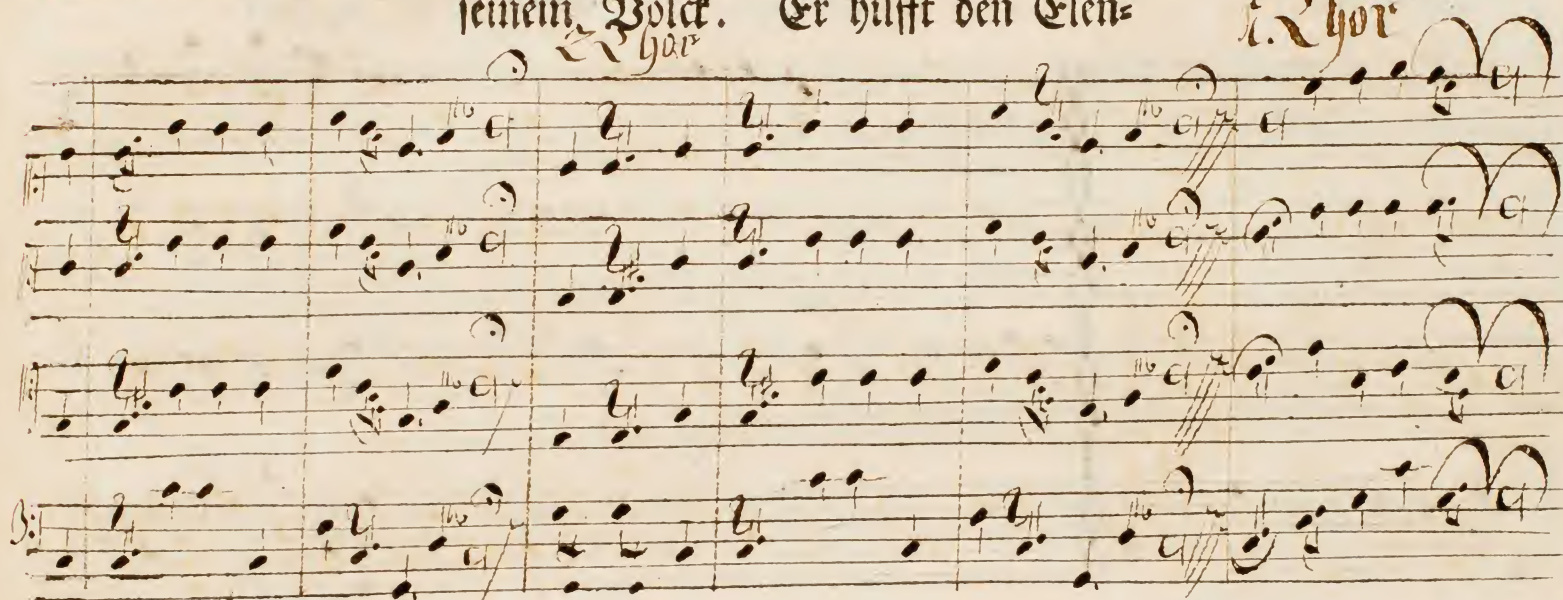 seinem Volck. Er hilfft den Elen=
2 Chor
1. Chor